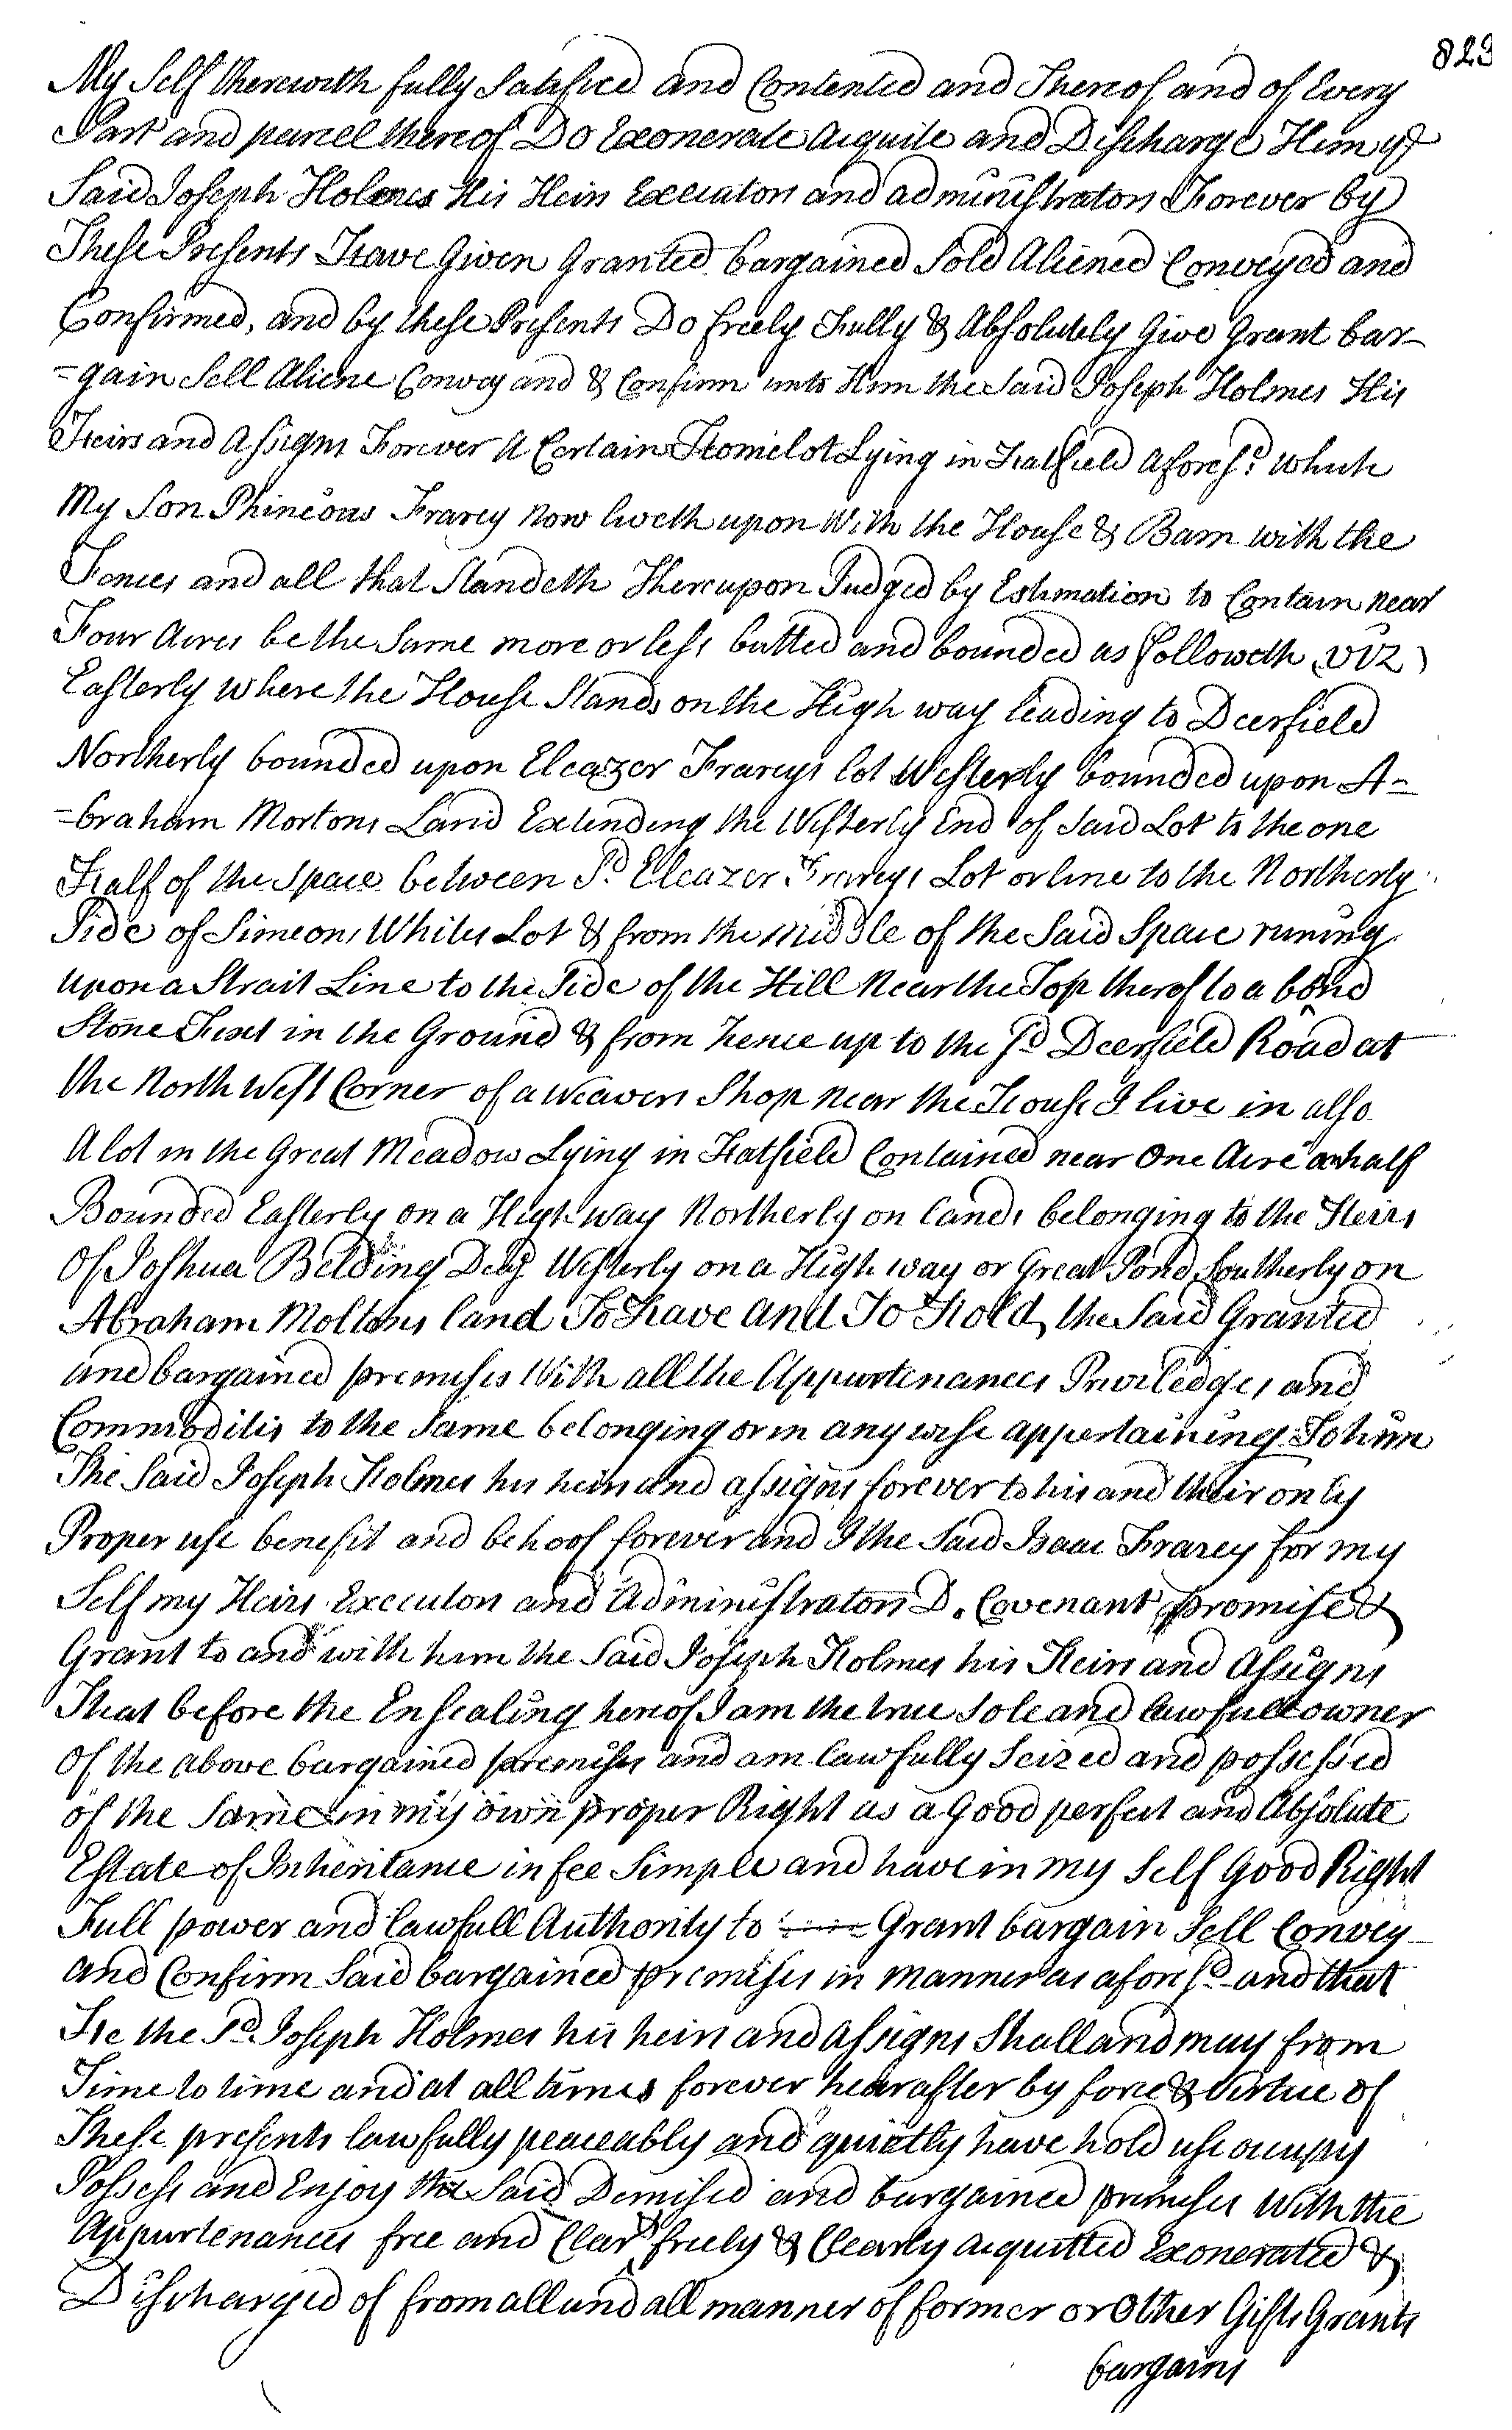 823
My Self therewith fully Satisfied and Contented and Thereof and of Every
Part and parcel thereof Do Exonerate Acquite and Discharge Him ye
Said Joseph Holmes His Heirs Executors and administrators Forever by
These Presents Have Given Granted bargained Sold Aliened Conveyed and
Confirmed, and by these Presents Do freely Fully & Absolutely Give Grant bar-
=gain Sell Aliene Convey and & Confirm unto Him the Said Joseph Holmes His
Heirs and Assigns Forever A Certain Homelot Lying in Hatfield Aforesd. which
My Son Phineous Frarey Now liveth upon With the House & Barn with the
Fences and all that Standeth Thereupon Judged by Estimation to Contain near
Four Acres be the Same more or less butted and bounded as followeth (viz)
Easterly where the House Stands on the High way leading to Deerfield
Northerly bounded upon Eleazer Frareys lot Westerly bounded upon A=
=braham Mortons Land Extending the Westerly End of Said Lot to the one
Half of the Space between Sd. Eleazer Frareys Lot or line to the Northerly
Side of Simeons Whites Lot & from the middle of the Said Space runing
upon a Strait Line to the Side of the Hill Near the Top therof to a bond
Stone in the Ground & from hence up to the sd Deerfield Road at
the North West Corner of a weavers Shop near the House I live in also
A lot in the Great Meadow Lying in Hatfield Contained near One Acre an half
Bounded Easterly on a High way Northerly on lands belonging to the Heirs
Of Joshua Belding Decd Westerly on a High way or Great Pond Southerly on
Abraham Moltons land To Have and To Hold the Said Granted
and bargained premises With all the Appurtenances Priviledges and
Commodities to the Same belonging or in any wise appertaining To him
The Said Joseph Holmes his heirs and assigns forever to his and their only
Proper use benefit and behoof forever and I the Said Isaac Frarey for my
Self my Heirs Executors and Administrators Do Covenant promise &
Grant to and with him the Said Joseph Holmes his Heirs and Assigns
That before the Ensealing hereof I am the true Sole and lawfull owner
Of the above bargained premises and am lawfully Seized and possessed
of the Same in my own proper Right as a Good perfect and Absolute
Estate of Inheritance in fee Simple and have in my Self Good Right
Full power and lawfull Authority to Grant bargain Sell Convey
and Confirm Said bargained premises in manner as aforesd and that
He the Sd Joseph Holmes his heirs and assigns Shall and may from
Time to time and at all times forever hearafter by force & Virtue of
These presents lawfully peaceably and quietly have hold use occupy
Possess and Enjoy the Said Demised and bargained premises With the
Appurtenances free and Clear freely & Clearly acquitted Exonerated &
Discharged of from all and all manner of former or Other Gifts Grants
bargains